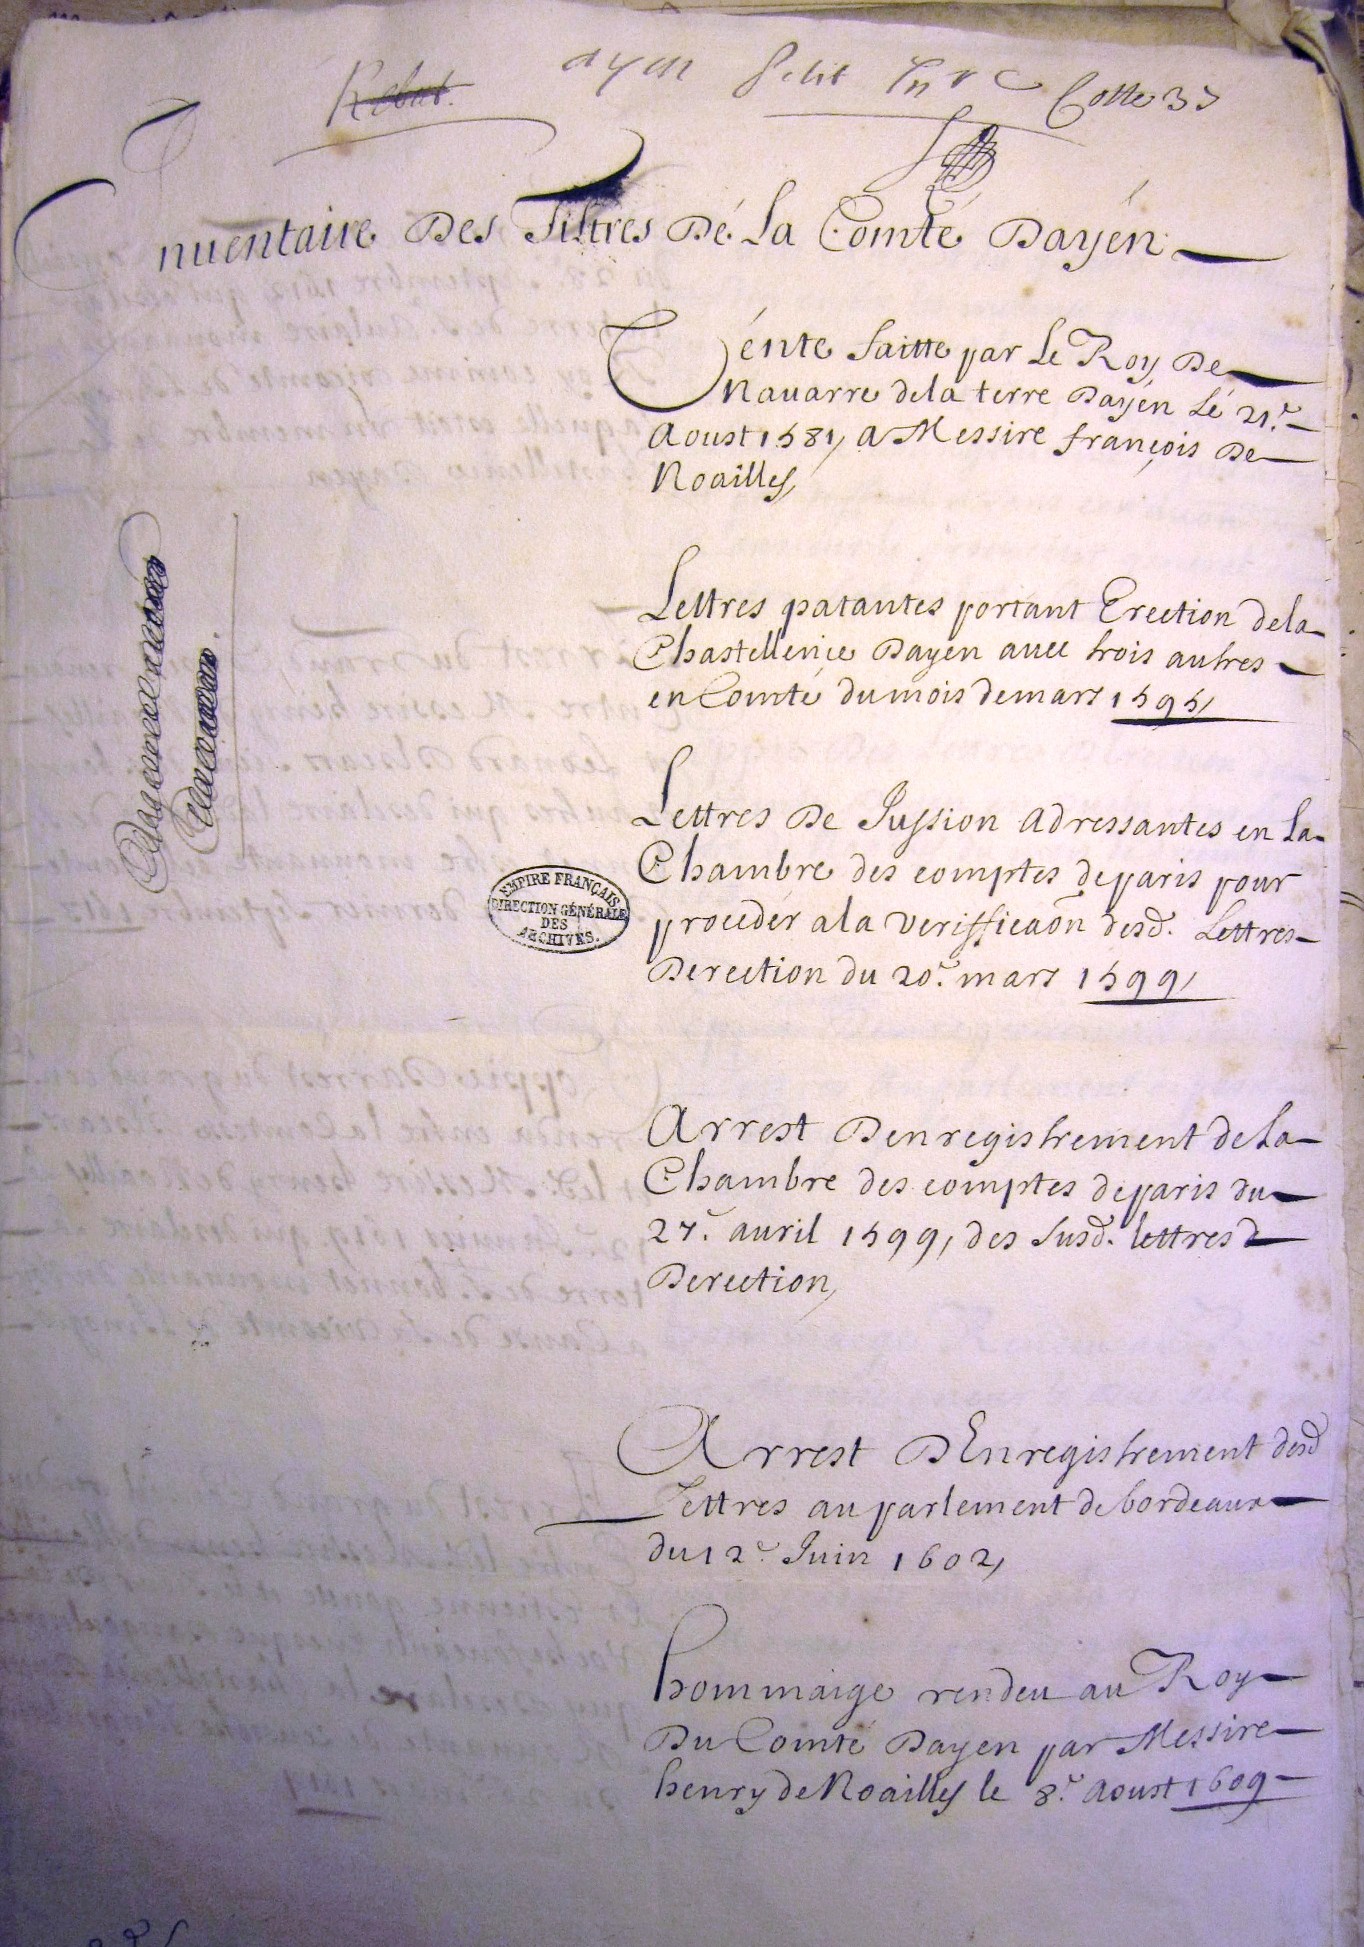 Rebut.
ayen petit Inv c Cotte 37
Inuentaire Des Tiltres Dé La Comté Dayén
Vénte faitte par Le Roy De
Nauarre dela terre Dayén Lé 21.e
Aoust 1581, A Messire françois De
Noailles,
Lettres patantes portant Erection dela
Chastellenie Dayen auec trois autres
en Comté du mois de mars 1595,
Lettres De Jussion Adressantes en La
Chambre des comptes de paris pour
proceder a la Veriffica͠on desd. Lettres
Derection du 20.e mars 1599,
Arrest Denregistrement de La
Chambre des comptes de paris du
27.e auril 1599, des susd. lettres
Derection,
Arrest DEnregistrement desd
Lettres au parlement de bordeaux
du 12.e Juin 1602,
hommaige rendeu au Roy
Du Comté Dayen par Messire
henry de Noailles le 8.e Aoust 1609
EMPIRE FRANÇAIS
DIRECTION GÉNÉRALE
DES
ARCHIVES.